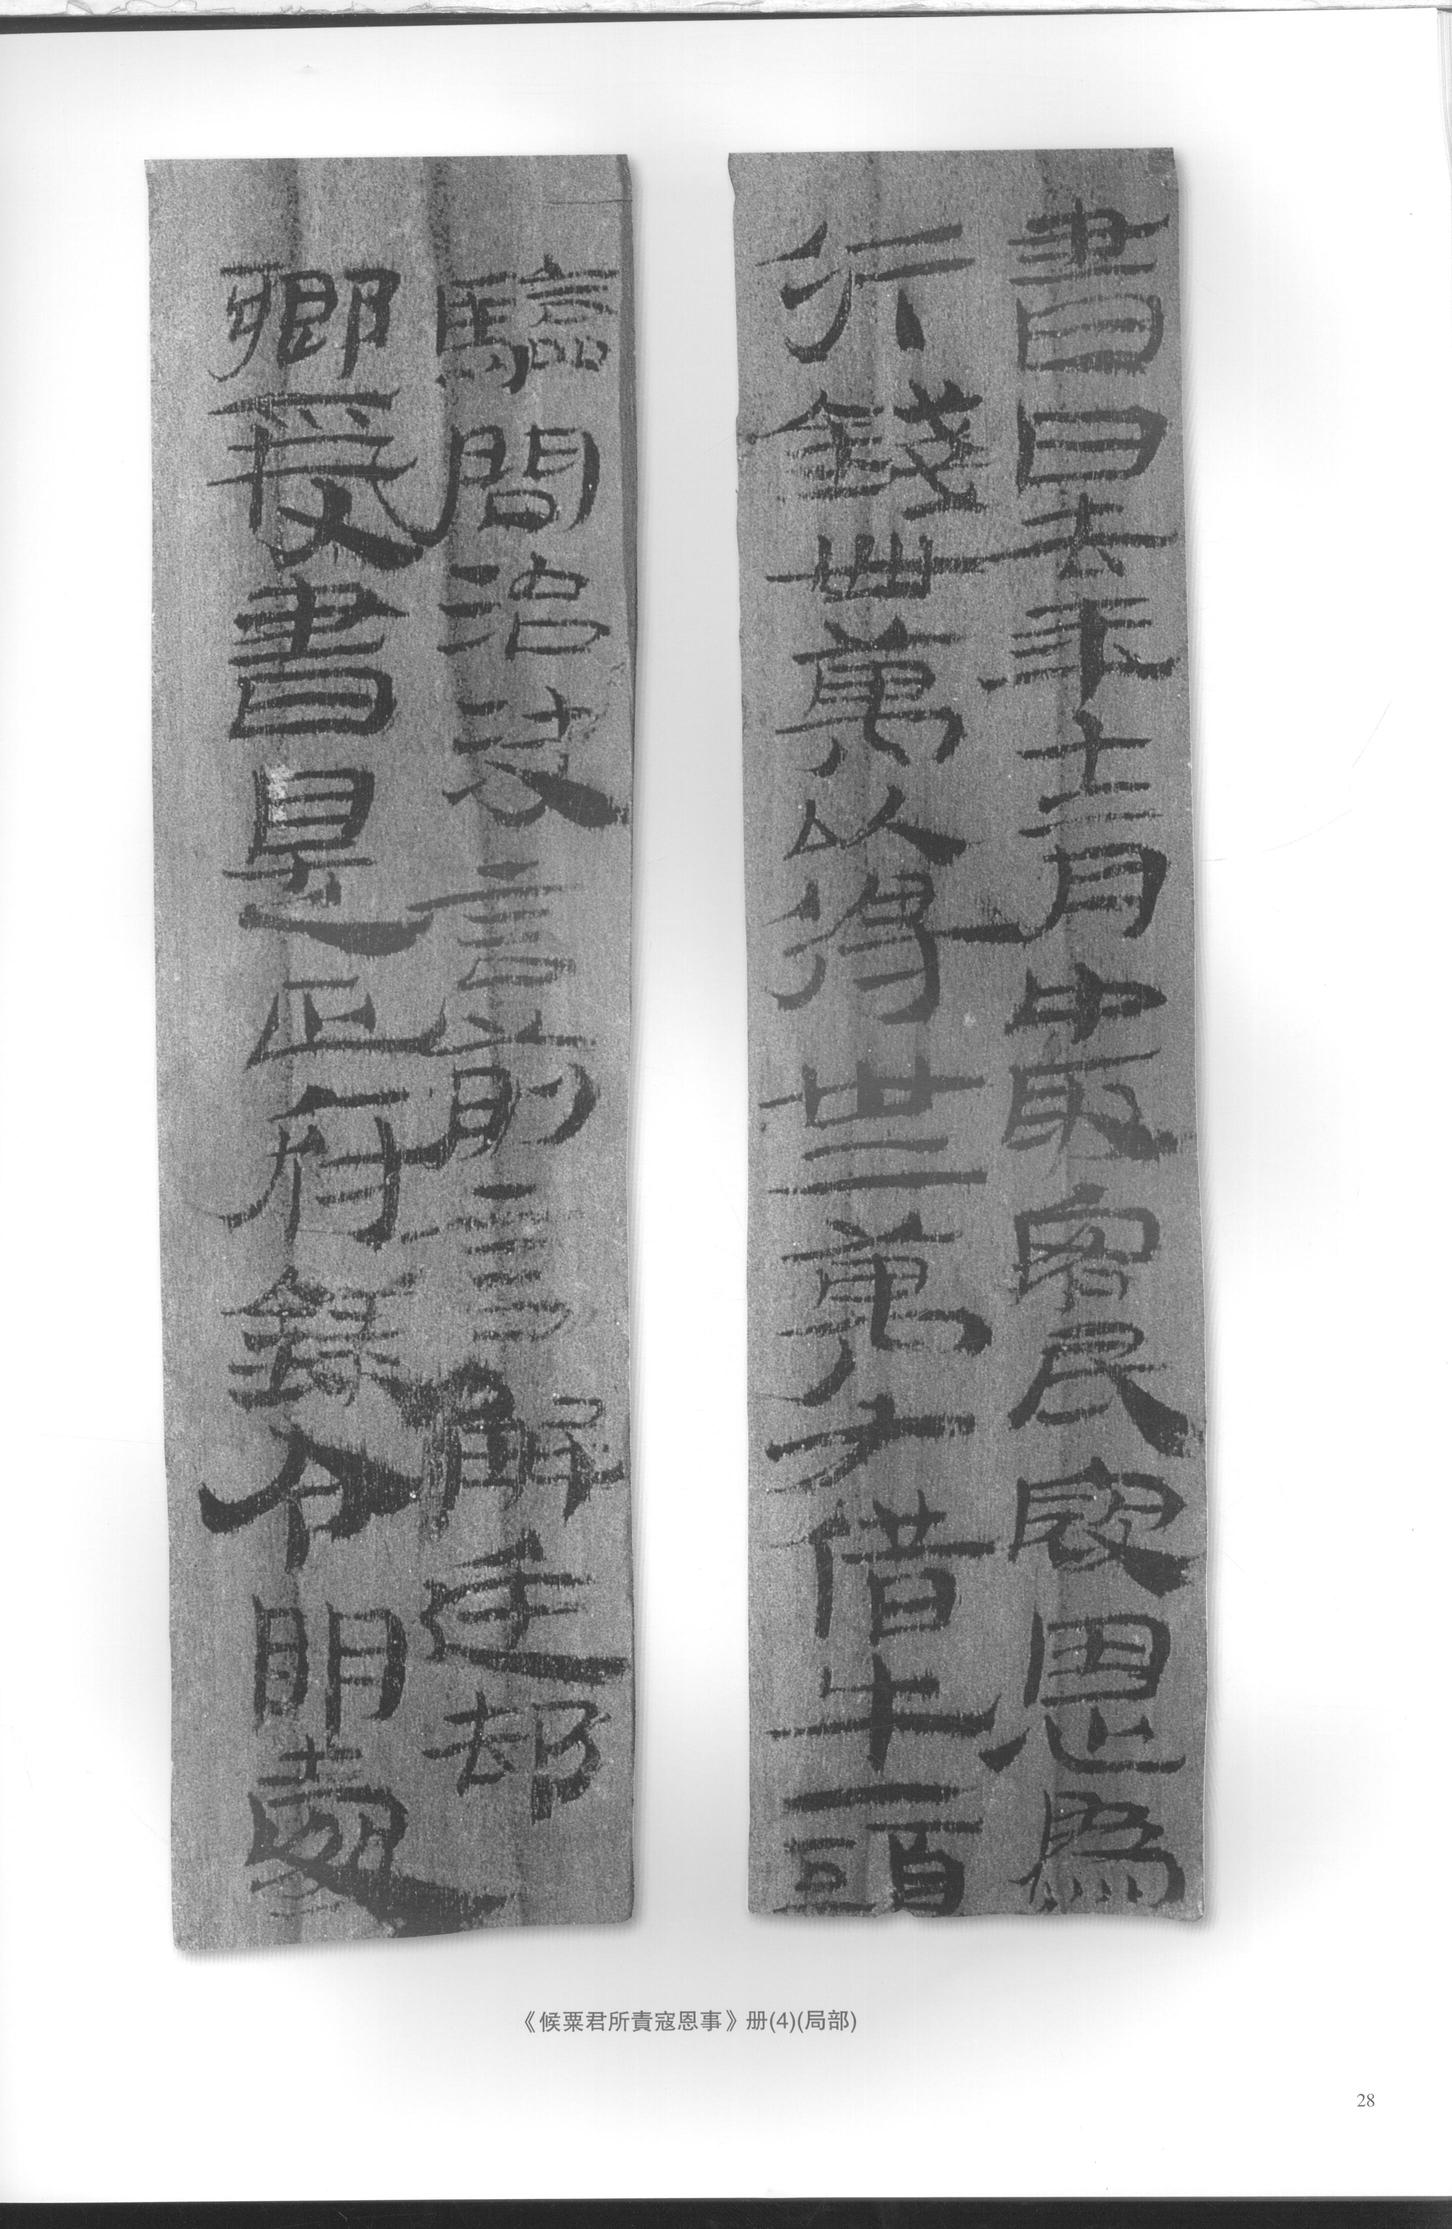 書曰去年十二月中取客民寇恩為
行錢卌萬以得卅二萬又借牛一頭
驗問治決言前言解廷郵
鄉爰書是正府錄令明處
《候粟君所責寇恩事》册(4)(局部)
28